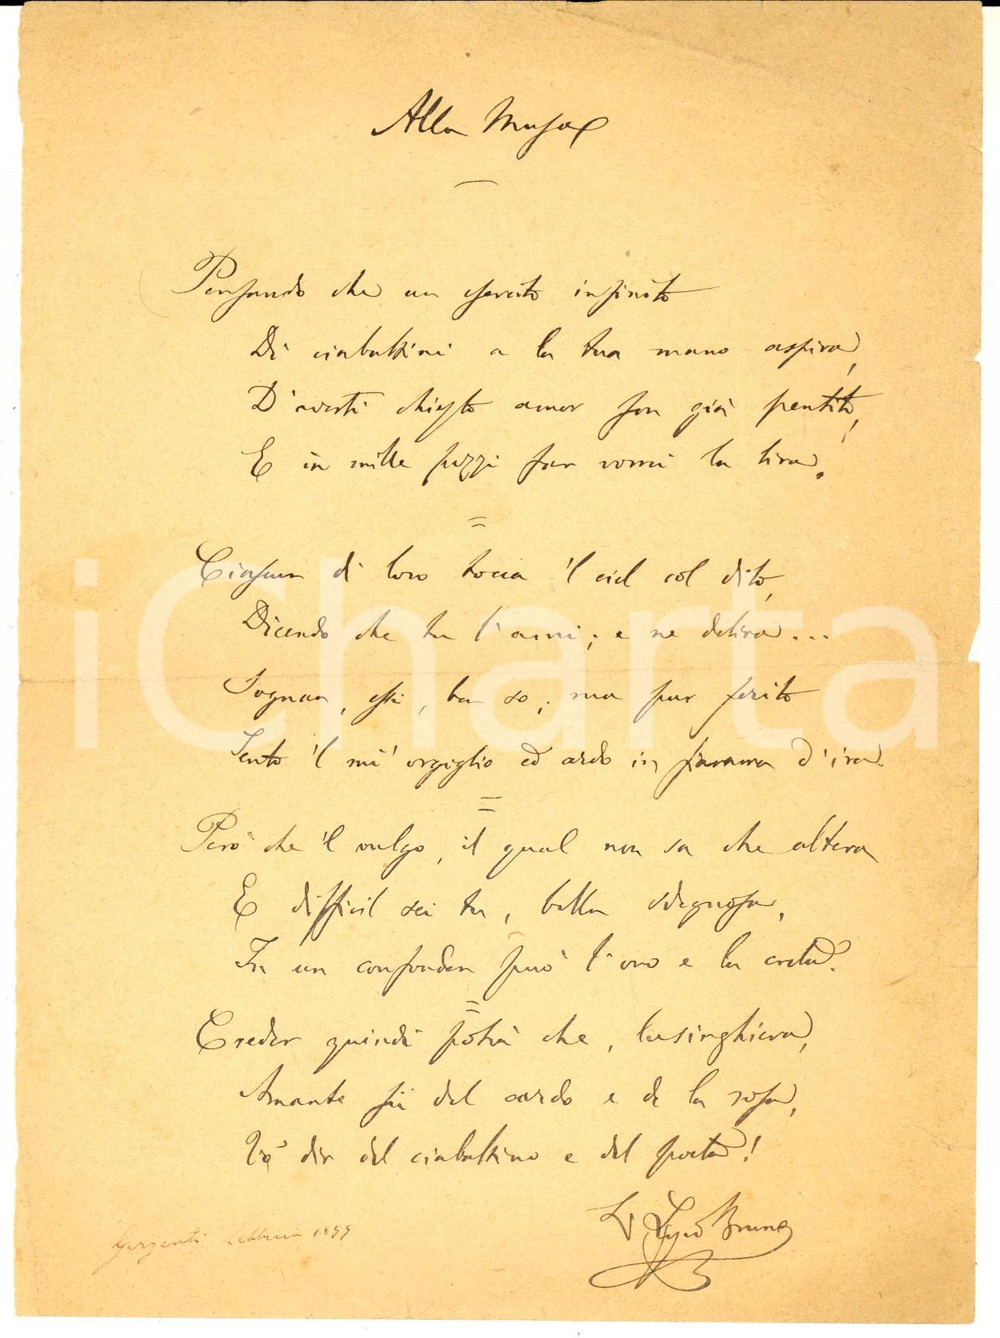 Alla Musa
Pensando che un esercito infinito
Di ciabattini a la tua mano aspira,
D'averti chiesto amor son già pentito,
E in mille pezzi far vorrei la lira.
Ciascun di loro tocca 'l ciel col dito,
Dicendo che tu l'ami; e ne delira...
Sognan, essi, ben so; ma pur ferito
Sento 'l mi' orgoglio ed ardo in fiamma d'ira.
Però che 'l vulgo, il qual non sa che altera
E difficil sei tu, bella sdegnosa,
In un confonder può l'oro e la creta.
Creder quindi potrà che, lusinghiera,
Amante sii del cardo e de la rosa,
Vo' dir del ciabattino e del poeta!
Bruno
Girgenti Febbraio 1899
iCharta